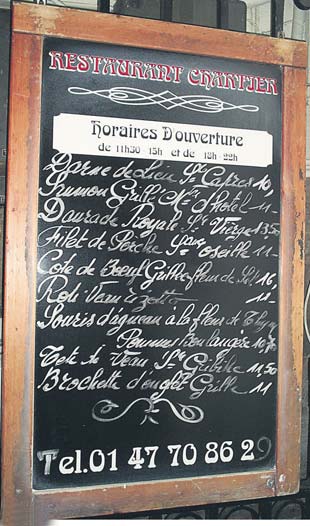 RESTAURANT CHARTIER
Horaires D'ouverture
de 11h30 - 15h et de 18h - 22h
Darne de Lieu Sce Capres 10,
Saumon Grillé M. d'hotel 11 -
Daurade Royale Sce Vierge 13,50
Filet de Perche Sce oseille 11 -
Cote de Boeuf Grillé fleur de Sel 16,
Roti Veau 11 -
Souris d'agneau à la fleur de Thym
Pommes Boulangère 10,70
Tete de Veau Sce Gribiche 11,50
Brochette d'onglet Grillé 11
Tel.01 47 70 86 29